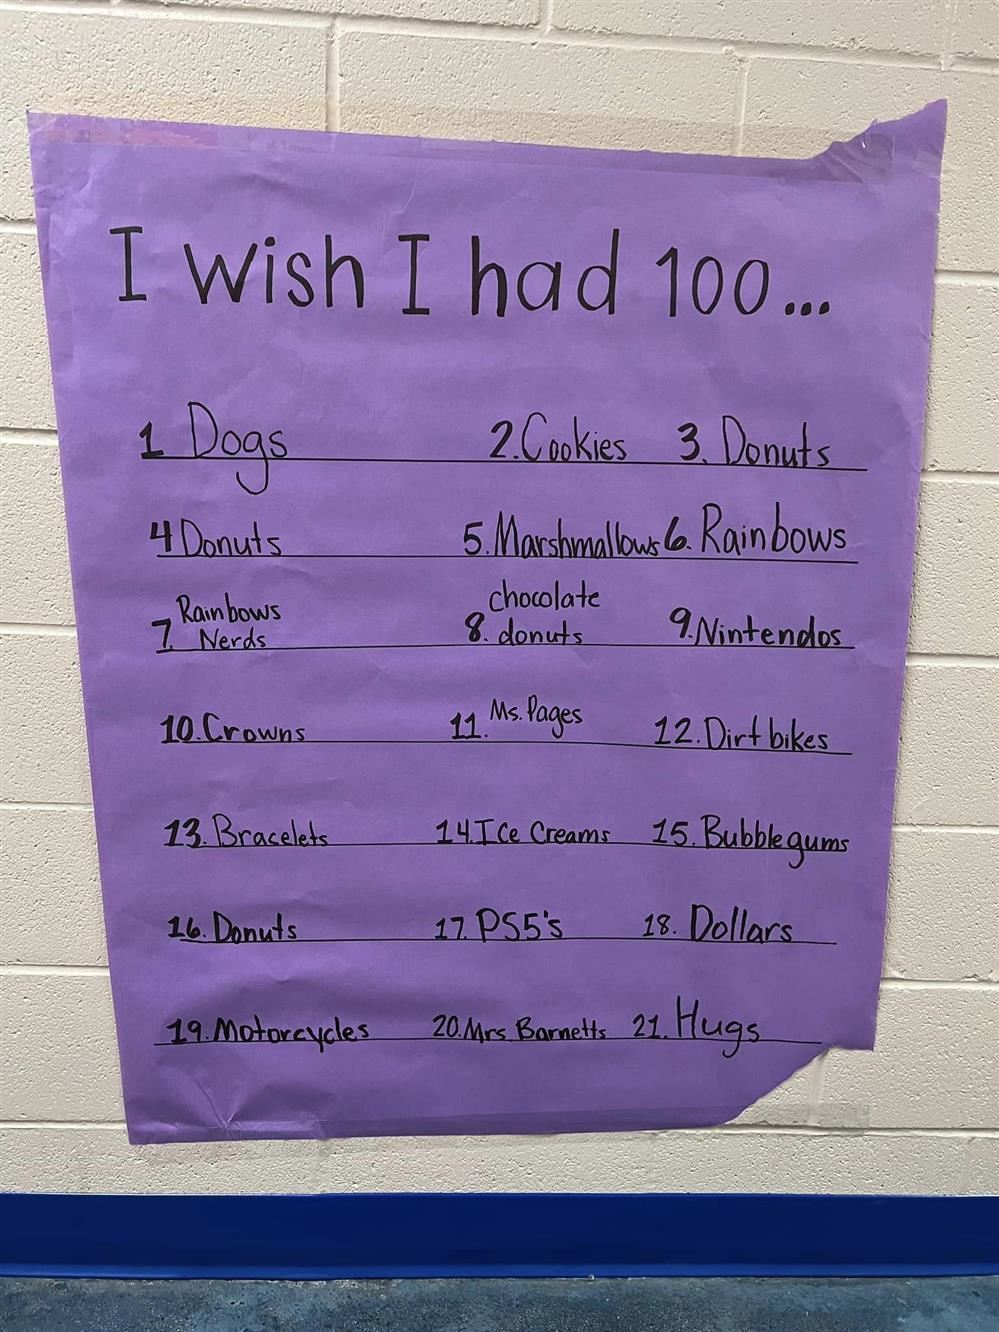 I wish I had 100...
1 Dogs 2. Cookies 3. Donuts
4 Donuts 5. Marshmallows 6. Rainbows
7. Rainbows Nerds 8. chocolate donuts 9. Nintendos
10. Crowns 11. Ms. Pages 12. Dirt bikes
13. Bracelets 14. Ice Creams 15. Bubble gums
16. Donuts 17. PS5's 18. Dollars
19. Motorcycles 20. Mrs Barnetts 21. Hugs